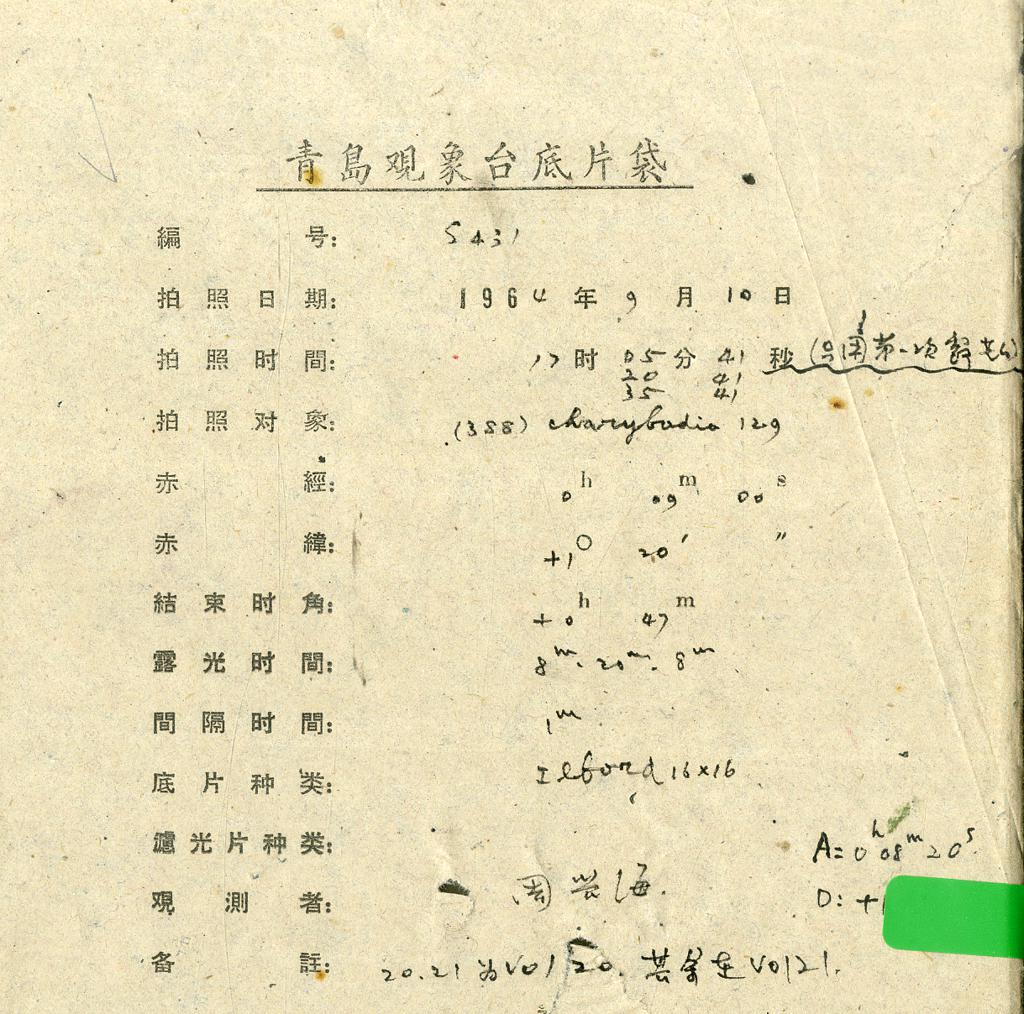 青島观象台底片袋
編号: S431
拍照日期: 1964年9月10日
拍照时間: 17时05分41秒
20 41
35 41
拍照对象: (388) charybdis 129
赤經: 0h 09m 00s
赤緯: +1° 20′ ″
結束时角: +0h 47m
露光时間: 8m. 20m. 8m
間隔时間: 1m
底片种类: Ilford 16×16
濾光片种类:
A= 0h 08m 20s
覌測者: 周 海
D: +1
备註: 20.21为Vol 20. 其余在Vol21.